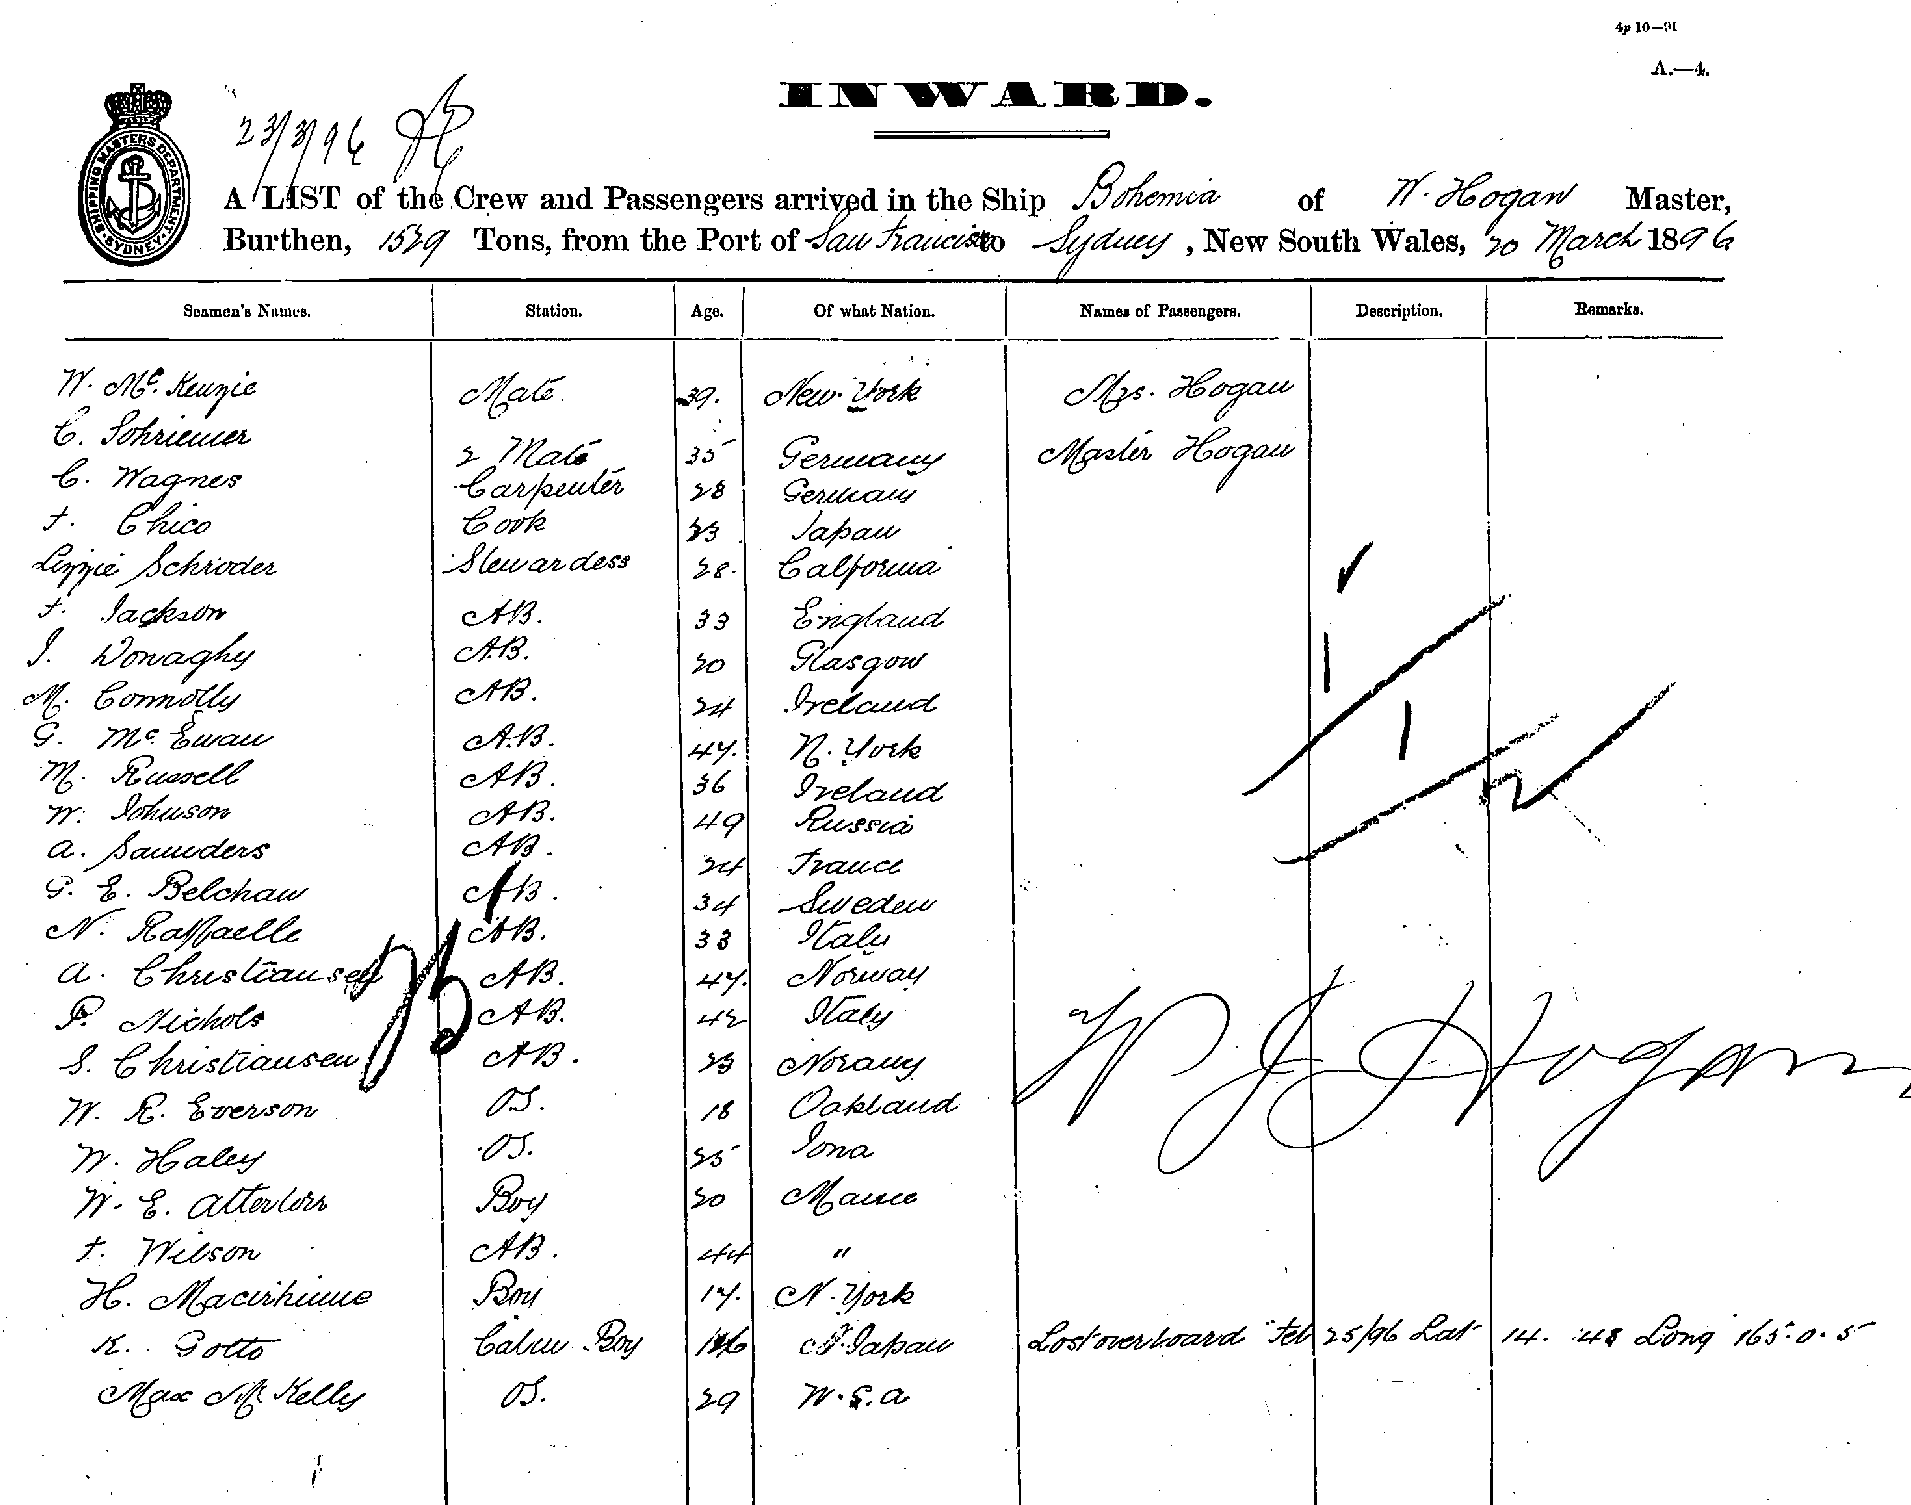 4p 10—91
A.—4.
INWARD.
SHIPPING MASTERS DEPARTMENT SYDNEY
23/3/96
A LIST of the Crew and Passengers arrived in the Ship Bohemia of W. Hogan Master,
Burthen, 1529 Tons, from the Port of San Francisco to Sydney, New South Wales, 20 March 1896
Seamen's Names. Station. Age. Of what Nation. Names of Passengers. Description. Remarks.
W. Mc. Kenzie Mate 39. New York Mrs. Hogan
C. Schriemer 2 Mate 35 Germany Master Hogan
C. Wagnes Carpenter 28 Germany
F. Chico Cook 23 Japan
Lizzie Schroder Stewardess 28. Calfornia
F. Jackson AB. 33 England
J. Donaghy AB. 20 Glasgow
M. Connolly AB. 24 Ireland
G. Mc. Ewan A.B. 47. N. York
M. Russell AB. 36 Ireland
W. Johnson AB. 49 Russia
A. Saunders AB. 24 France
G. E. Belchaw AB. 34 Sweden
N. Raffaelle AB. 33 Italy
A. Christiansen AB. 47. Norway
P. Nichols AB. 42 Italy
S. Christiansen AB. 23 Norany
W. J. Hogan
W. R. Everson OS. 18 Oakland
W. Haley OS. 25 Iona
W. E. Boy 20 Maine
F. Wilson AB. 44 "
H. Boy 17. N. York
K. Gotto Cabin Boy 16 Japan Lost overboard Feb 25/96 Lat 14. 48 Long 165.0.5
Max Mc Kelly OS. 29 W.S.A